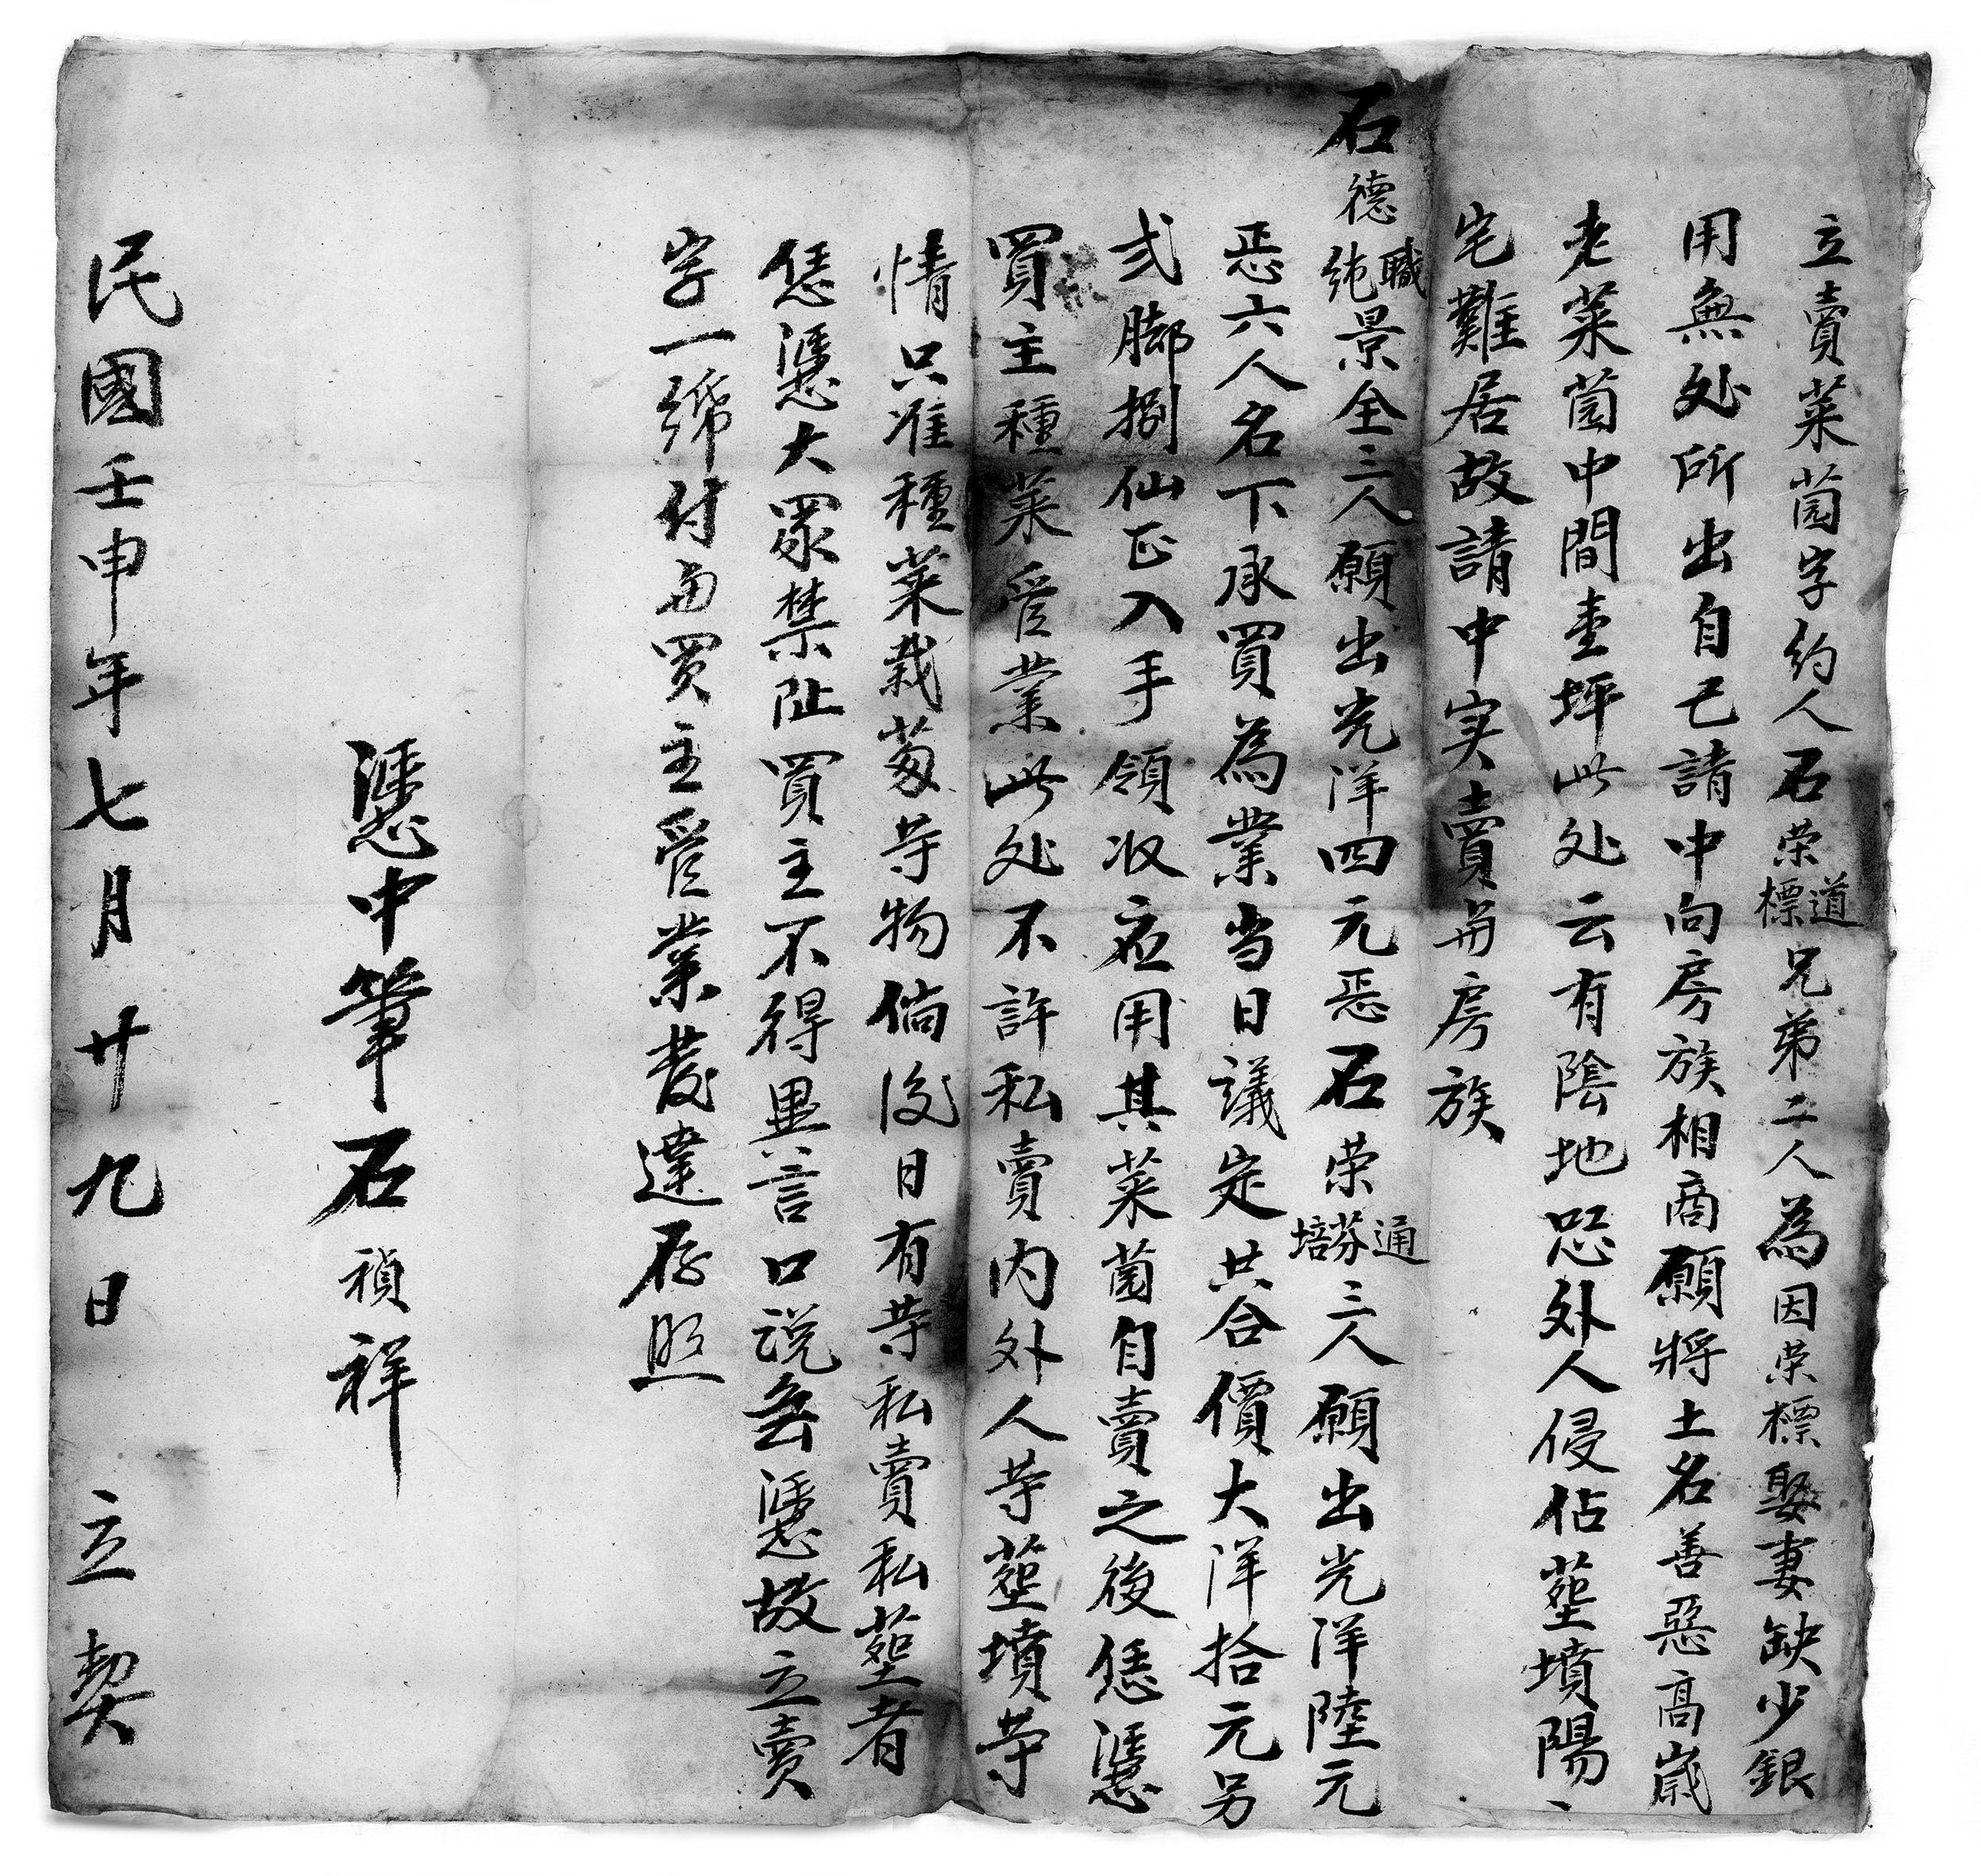 立賣菜茵字約人石荣道標兄弟二人為因荣標娶妻缺少銀
用無处所出自己請中向房族相商願將土名善惡高嵗
老菜茵中間壹坪此处云有陰地恐外人侵佔塟墳陽
宅難居故請中实賣与房族
石德職純景全三人願出光洋四元恶石荣通芬培三人願出光洋陸元
恶六人名下承買為業当日議定共合價大洋拾元另
弍脚捌仙正入手領收应用其菜茵自賣之後恁凴
買主種菜管業此处不許私賣内外人等塟墳等
情只准種菜栽蒭等物倘後日有等私賣私塟者
恁凴大眾禁阯買主不得異言口说無凴故立賣
字一紙付与買主管業發達存照
凴中筆石禎祥
民國壬申年七月廿九日立契